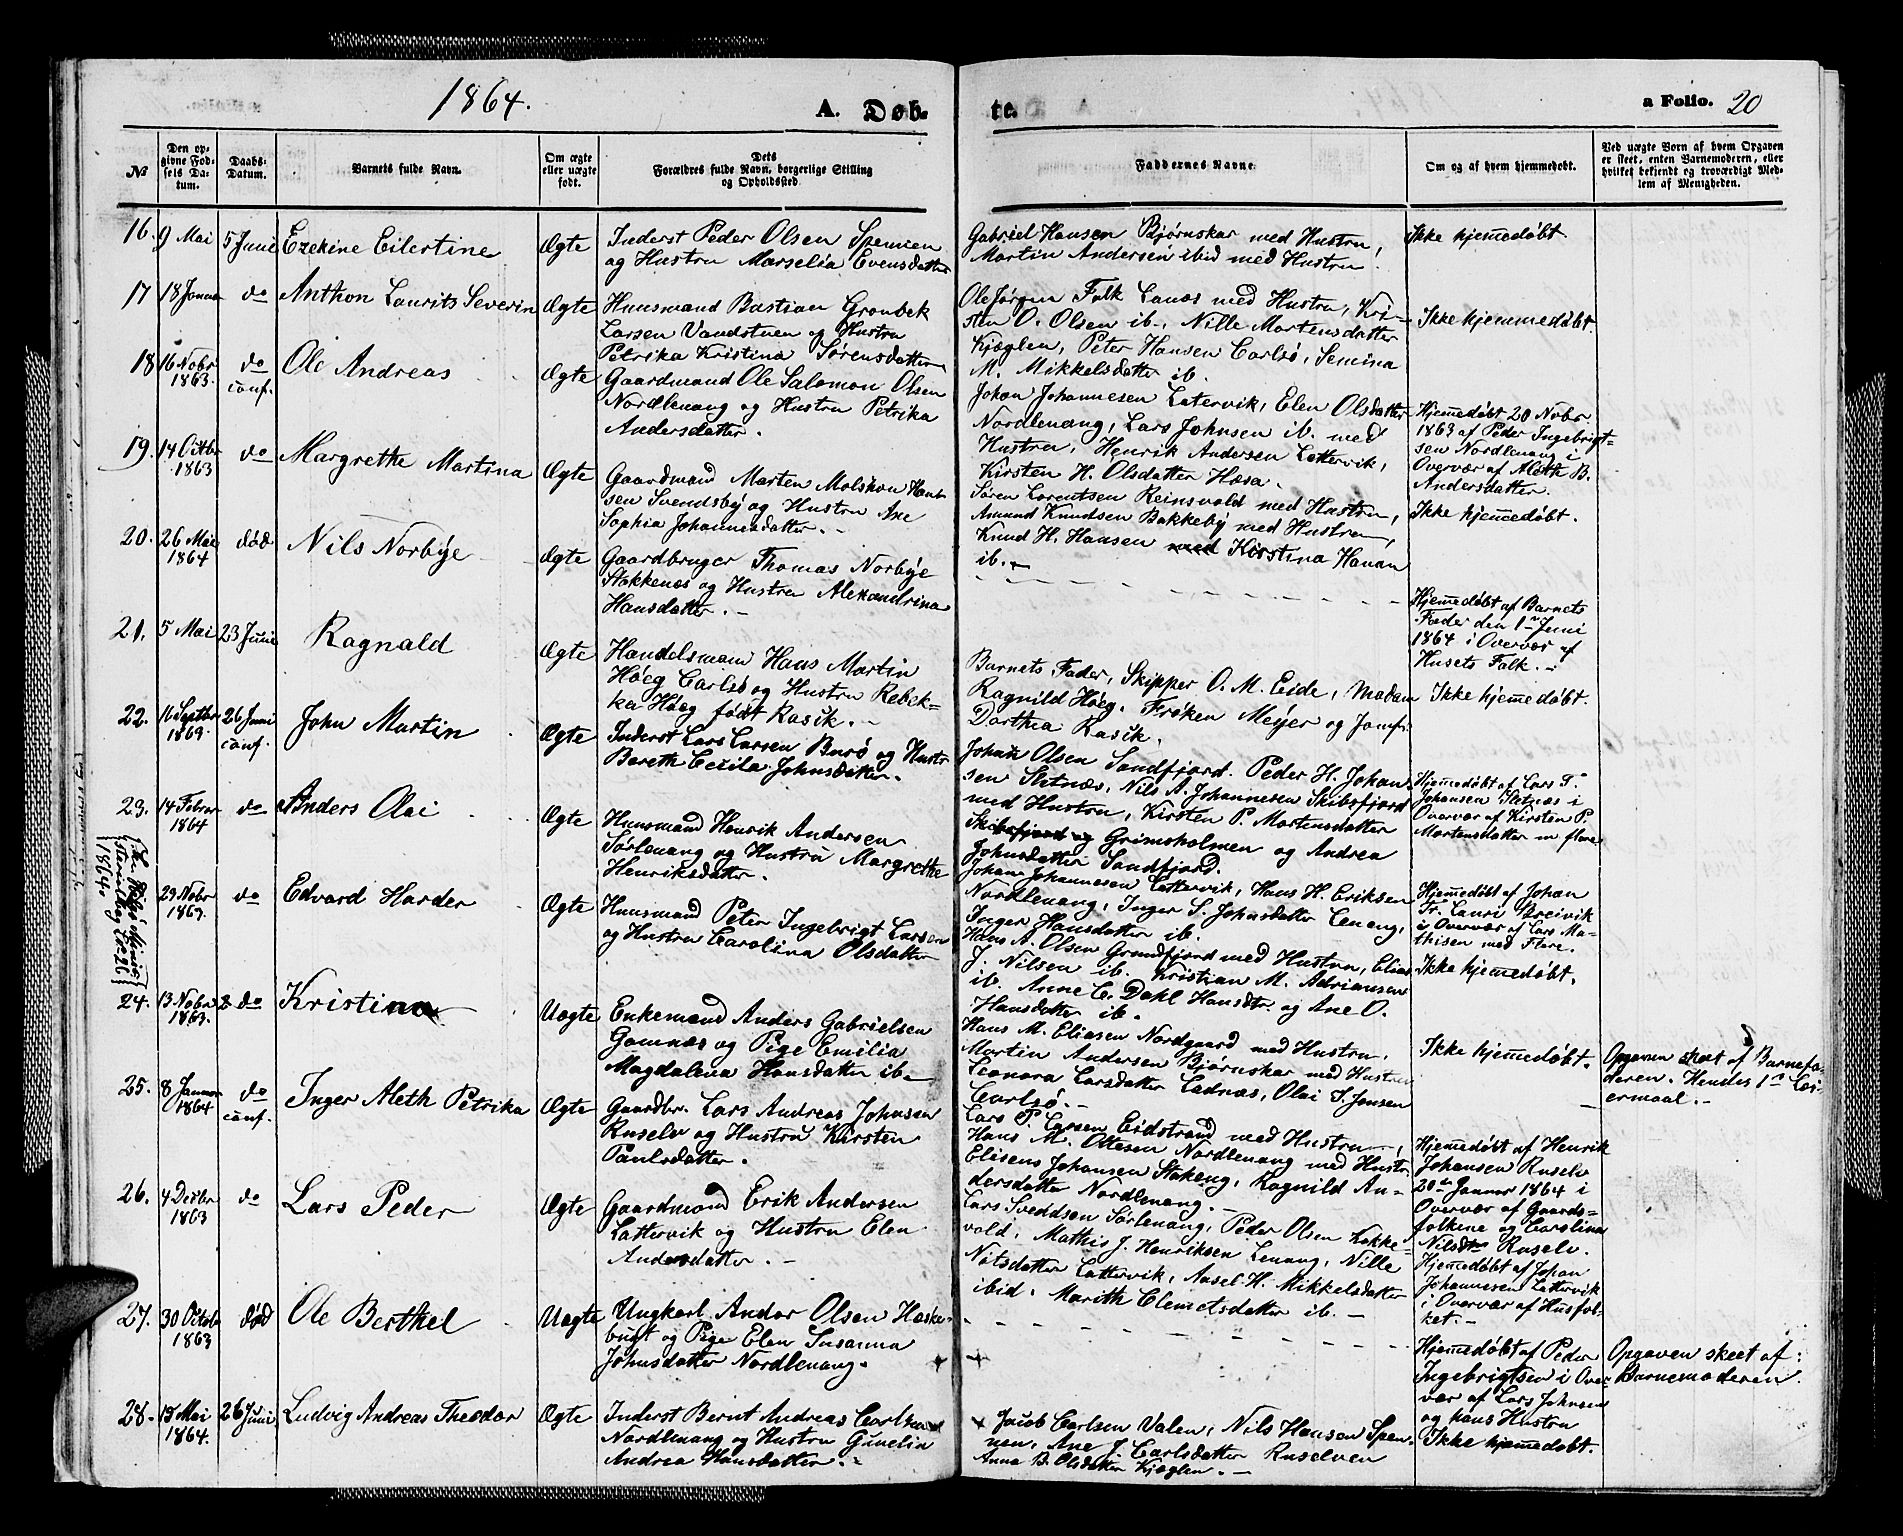 1864.
A. Døb-
te.
a Folio. 20
№
Den op-
givne Fød-
sels Da-
tum.
Daabs-
Datum.
Barnets fulde Navn.
Om ægte
eller uægte
født.
Dets
Forældres fulde Navn, borgerlige Stilling
og Opholdssted.
Faddernes Navne.
Om og af hvem hjemmedøbt.
Ved uægte Børn af hvem Opgaven
er skeet, enten Barnemoderen, eller
hvilket bekjendt og troværdigt Med-
lem af Menigheden.
16. 9 Mai 5 Juni Ezekine Eilertine Ægte
Inderst Peder Olsen Spennen
og Hustru Marselia Evensdatter
Gabriel Hansen Bjørnskar med Hustru,
Martin Andersen ibid med Hustru.
Ikke hjemmedøbt.
17 18 Januar do Anthon Laurits Severin Ægte
Huusmand Bastian Grønbek
Larsen Vandstuen og Hustru
Petrika Kristina Sørensdatter
Ole Jørgen Falk Lanæs med Hustru, Kri-
sten O. Olsen ib., Nille Martensdatter
Kjæglen, Peter Hansen Carlsø, Semina
M. Mikkelsdatter ib.
Ikke hjemmedøbt
18 16 Nobr 1863. do conf. Ole Andreas Ægte
Gaardmand Ole Salomon Olsen
Nordlenang og Hustru Petrika
Andersdatter.
Johan Johannesen Latervik, Elen Olsdatter
Nordlenang, Lars Johnsen ib. med
Hustru, Henrik Andersen Lattervik,
Kirsten H. Olsdatter Hæsa.
Hjemmedøbt 20 Nobr.
1863 af Peder Ingebrigt-
sen Nordlenang i
Overvær af Aleth B.
Andersdatter.
19. 14 Octbr 1863 do Margrethe Martina Ægte
Gaardmand Marten Molskon Han-
sen Svendsby og Hustru Ane
Sophia Johannesdatter.
Søren Lorentsen Reinsvold med Hustru,
Amund Knudsen Bakkeby med Hustru,
Knud H. Hansen med Kirstina Hanan
ib.
Ikke hjemmedøbt.
20. 26 Mai 1864 død Nils Norbye Ægte
Gaardbruger Thomas Norbye
Stokkenæs og Hustru Alexandrina
Hansdatter.
Hjemmedøbt af Barnets
Fader den 1ste Juni
1864 i Overvær af
Husets Folk.
21. 5 Mai 23 Juni Ragnald Ægte
Handelsmann Hans Martin
Høeg Carlsø og Hustru Rebek-
ka Høeg født Rasik.
Barnets Fader, Skipper O. M. Eide, Madam
Ragnild Høeg, Frøken Meyer og Jomfr.
Dorthea Rasik.
Ikke hjemmedøbt.
22. 16 Septbr 1863. 26 Juni conf. John Martin Ægte
Inderst Lars Larsen Burø og Hustr.
Bereth Cecilia Johnsdatter.
Johan Olsen Sandfjord. Peder H. Johan-
sen Sletnæs, Nils A. Johannesen Skibsfjord
med Hustru, Kirsten P. Martensdatter
Skibsfjord og Grimsholmen og Andrea
Johnsdatter Sandfjord.
Hjemmedøbt af Lars T.
Johansen Sletnæs i
Overvær af Kirsten P.
Martensdatter m flere
23. 14 Febrar 1864 do Anders Olai Ægte
Huusmand Henrik Andersen
Sørlenang og Hustru Margrethe
Henriksdatter.
Johan Johannesen Lattervik, Hans H. Eriksen
Nordlenang, Inger S. Johnsdatter Lenang,
Inger Hansdatter ib.
Hjemmedøbt af Johan
Fr. Lauri Breivik
i Overvær af Lars Ma-
thisen med Flere.
1864.
29 Nobr 1863. do Edvard Harder Ægte
Huusmand Peter Ingebrigt Larsen
og Hustru Carolina Olsdatter
Hans A. Olsen Grundfjord med Hustru, Elias
J. Nilsen ib. Kristian M. Adriansen
ib. Anne C. Dahl Hansdtr. og Ane O.
Hansdatter ib.
Ikke hjemmedøbt.
24. 13 Nobr 1863. do Kristina Uægte
Enkemand Anders Gabrielsen
Gamnæs og Pige Emilia
Magdalena Hansdatter ib.
Hans M. Eliasen Nordgaard med Hustru,
Martin Andersen Bjørnskar med Hustru
Leonora Larsdatter Ladnæs, Olai S. Jensen
Carlsø.
Ikke hjemmedøbt.
Opgaven skeet af Barnefa-
deren. Hendes 1ste Lei-
ermaal.
25. 8 Januar 1864 do conf. Inger Aleth Petrika Ægte
Gaardbr. Lars Andreas Johnsen
Ruselv og Hustru Kirsten
Paulsdatter.
Lars P. Larsen Eidstrand med Hustru,
Hans M. Ottesen Nordlenang med Hustr.
Elisens Johansen Stakeng, Ragnild An-
dersdatter Nordlenang.
Hjemmedøbt af Henrik
Johansen Ruselv
20de Januar 1864 i
Overvær af Gaards-
folkene og Carolina
Nilsdtr Ruselv.
26. 4 Decbr 1863 do Lars Peder Ægte
Gaardmand Erik Andersen
Lattervik og Hustru Elen
Andersdatter.
Lars Sveddsen Sørlenang, Peder Olsen Kokke-
vold, Mathis J. Henriksen Lenang, Nille
Nilsdatter Lattervik, Axsel H. Mikkelsdatter
ibid. Marith Clemetsdatter ib.
Hjemmedøbt af Johan
Johannesen Lattervik
i Overvær af Husfol-
ket.
27. 30 Octob 1863 død Ole Berthel Uægte
Ungkarl Andor Olsen Haske-
bugt og Pige Elen Susanna
Johnsdatter Nordlenang.
Hjemmedøbt af Peder
Ingebrigtsen i Over-
vær af Lars Johnsen
og hans Hustru
Opgaven skeet af
Barnemoderen.
28. 15 Mai 1864. 26 Juni Ludvig Andreas Theodor Ægte
Inderst Bernt Andreas Carlsen
Nordlenang og Hustru Gunelia
Andrea Hansdatter.
Jacob Carlsen Valen, Nils Hansen Spen-
nen, Ane J. Carlsdatter Ruselven
Anna B. Olsdatter Kjæglen.
Ikke hjemmedøbt.